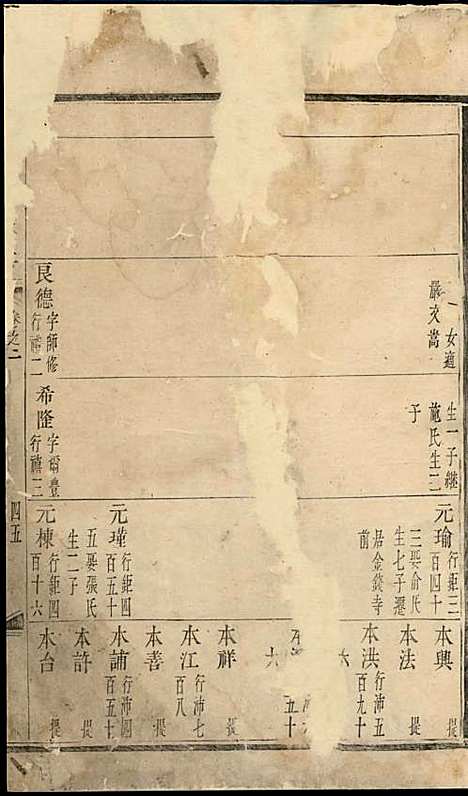 一女適
嚴文嵩
良德
字師修
生一子繼
施氏生二
子
希隆
字爾豊
元瑜
行鉅三
百四十
三娶俞氏
生七子遷
居金錢寺
前
元瑾
行鉅四
百五十
五娶張氏
生二子
元棟
行鉅四
百十六
本興 提
本法 提
本洪
行沛五
百九十
六
五十
六
本祥 提
本江
行沛七
百八 提
本善 提
本誧
行沛四
百五十 提
本許 提
本台 提
卷之二
四五